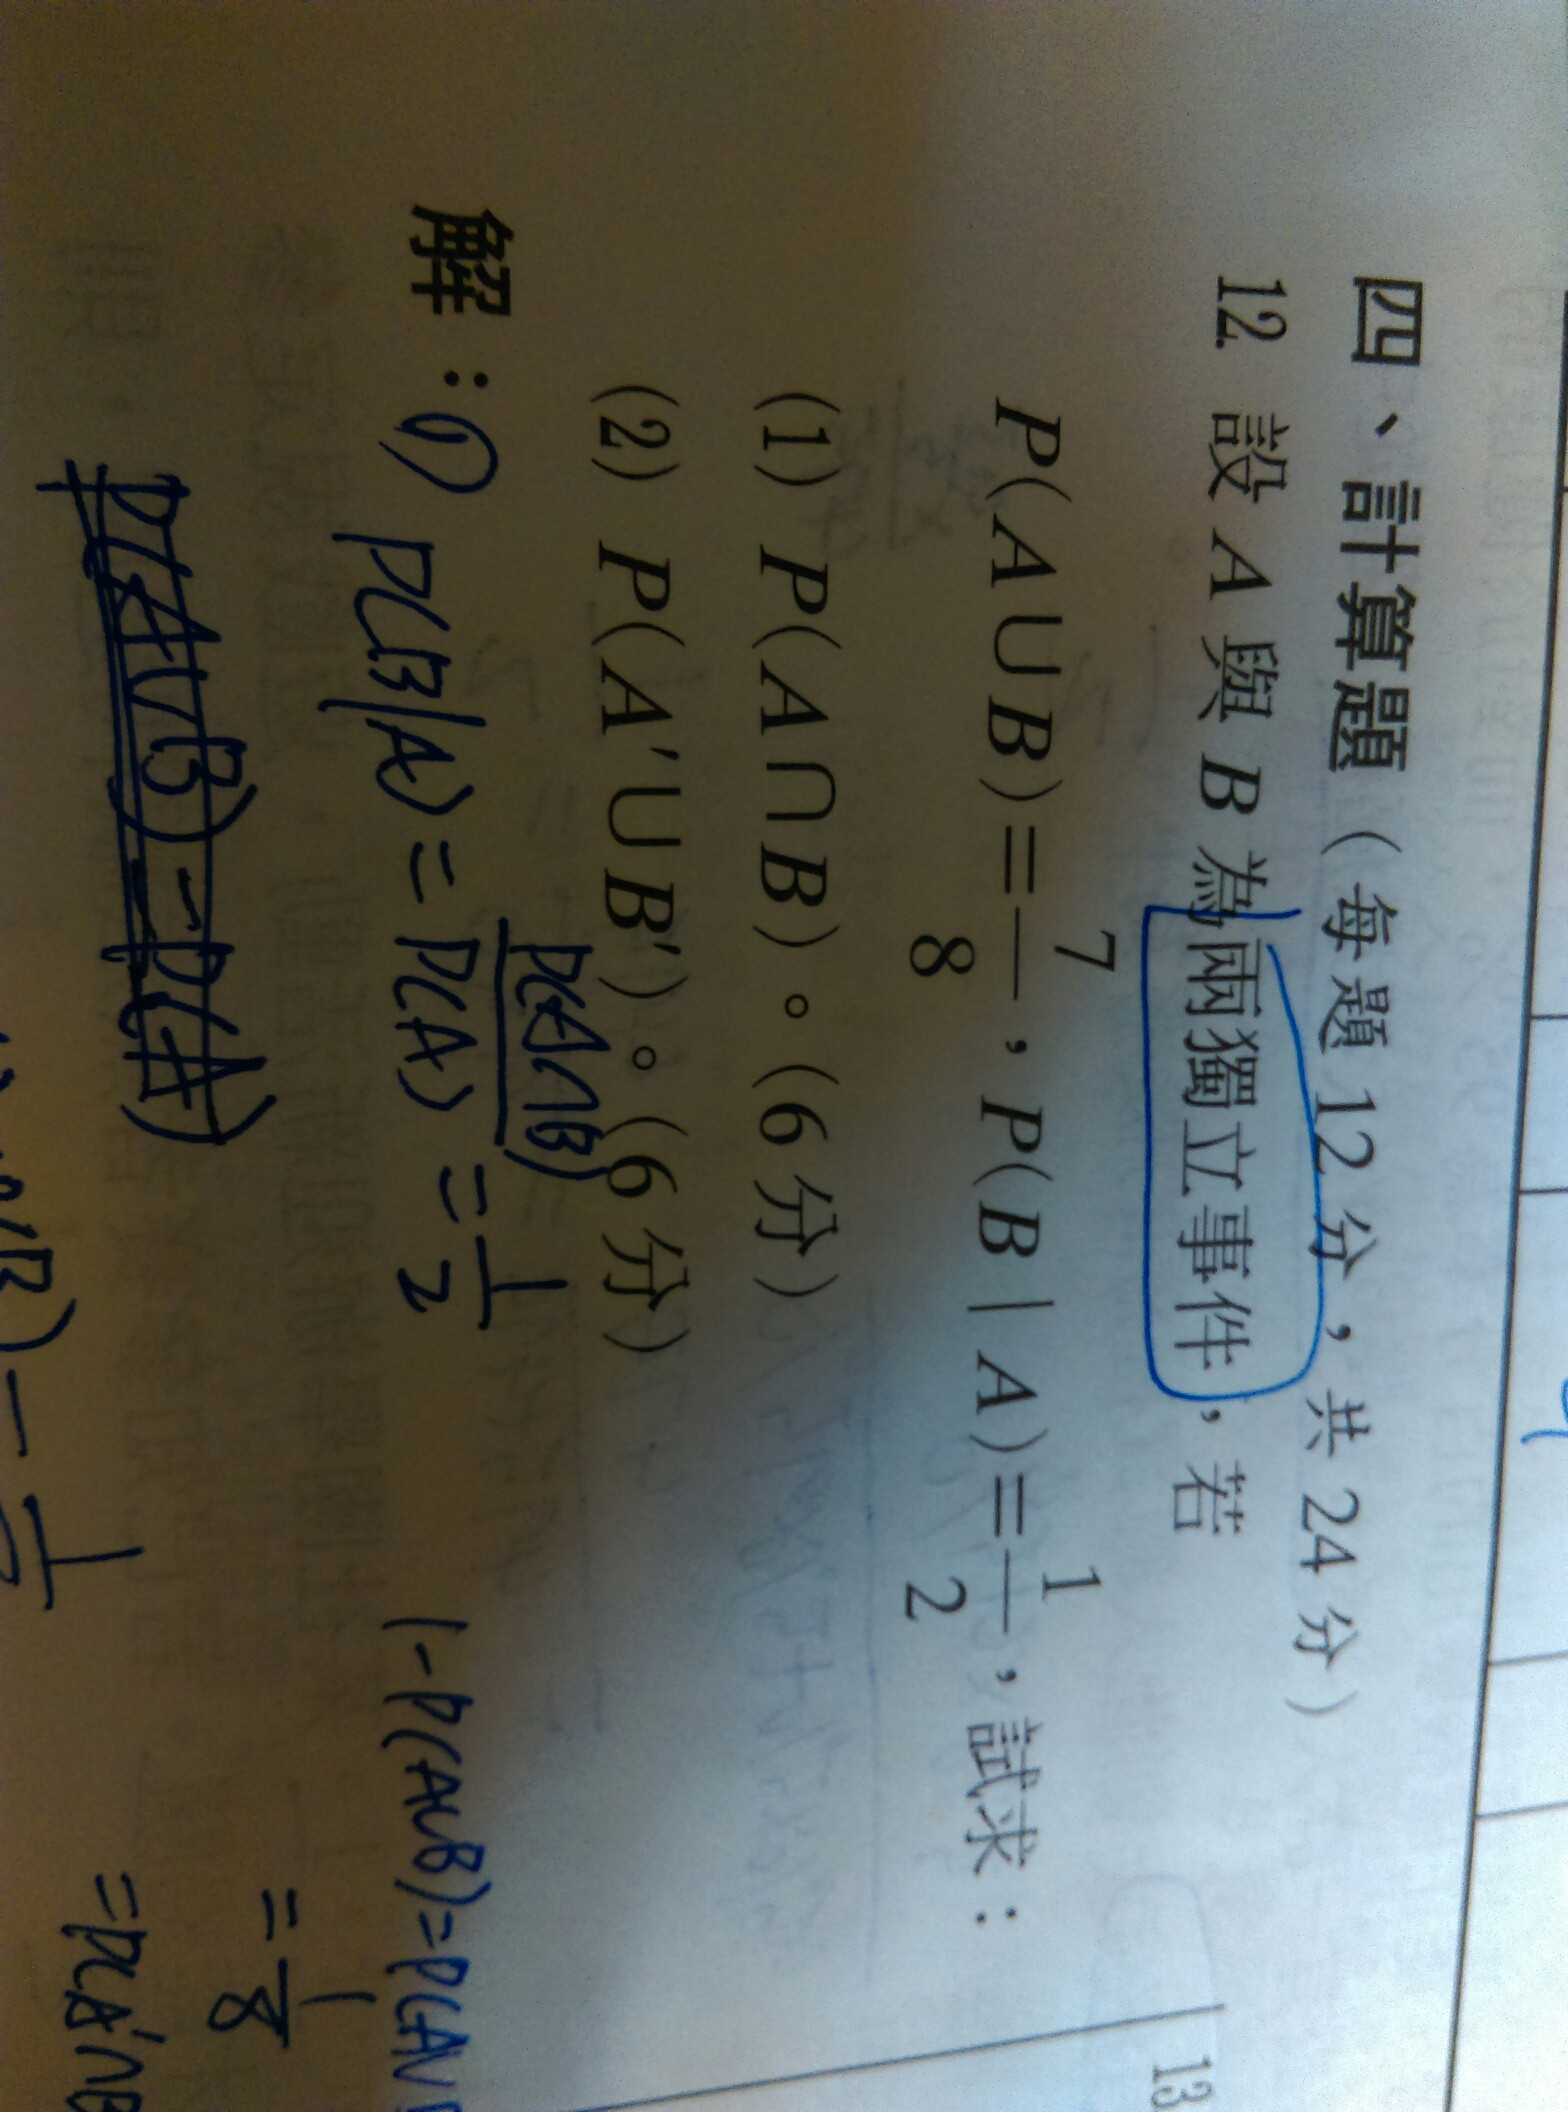 四、計算題（每題12分，共24分）
12 設 A 與 B 為兩獨立事件，若
P(A∪B)=7/8，P(B|A)=1/2，試求：
(1) P(A∩B)。(6分)
(2) P(A'∪B')。(6分)
解：① P(B|A)=P(A∩B)/P(A)=1/2
1-P(A∪B)=P(A∪
=1/8
=P(A'∩B
13